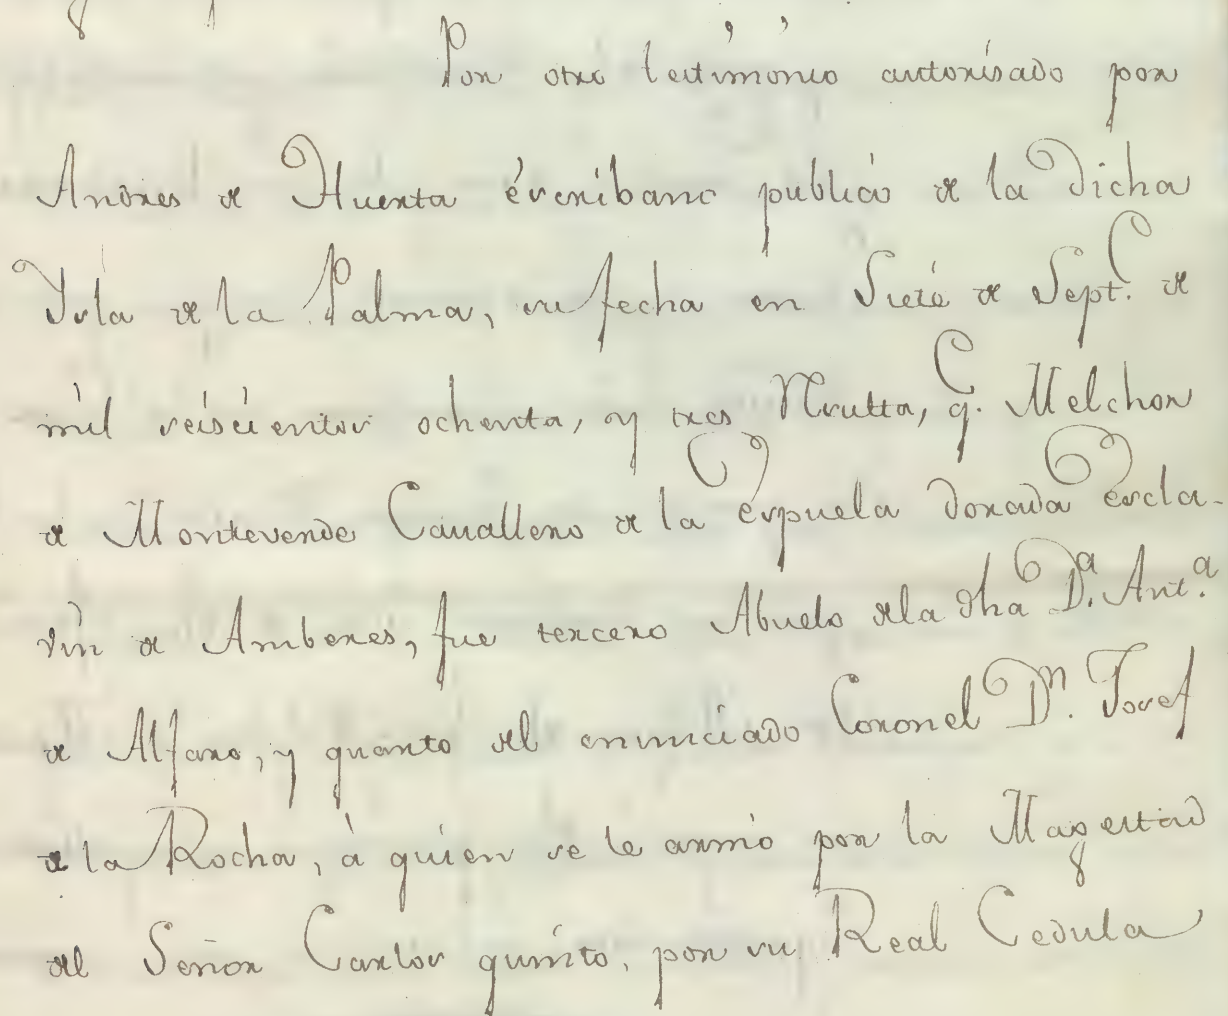 Por otro testimonio autorisado por
Andres de Huerta éscribano publico de la Dicha
Ysla de la Palma, su fecha en Siete de Sept. de
mil seiscientos ochenta, y tres Resulta, q. Melchor
de Monteverde Cauallero de la éspuela dorada éscla-
vin de Amberes, fue tercero Abuelo dela dha D.ª Ant.ª
de Alfaro, y quarto del enunciado Coronel D.n Josef
de la Rocha, à quien se le armó por la Magestad
del Señor Carlos quinto, por su Real Cedula